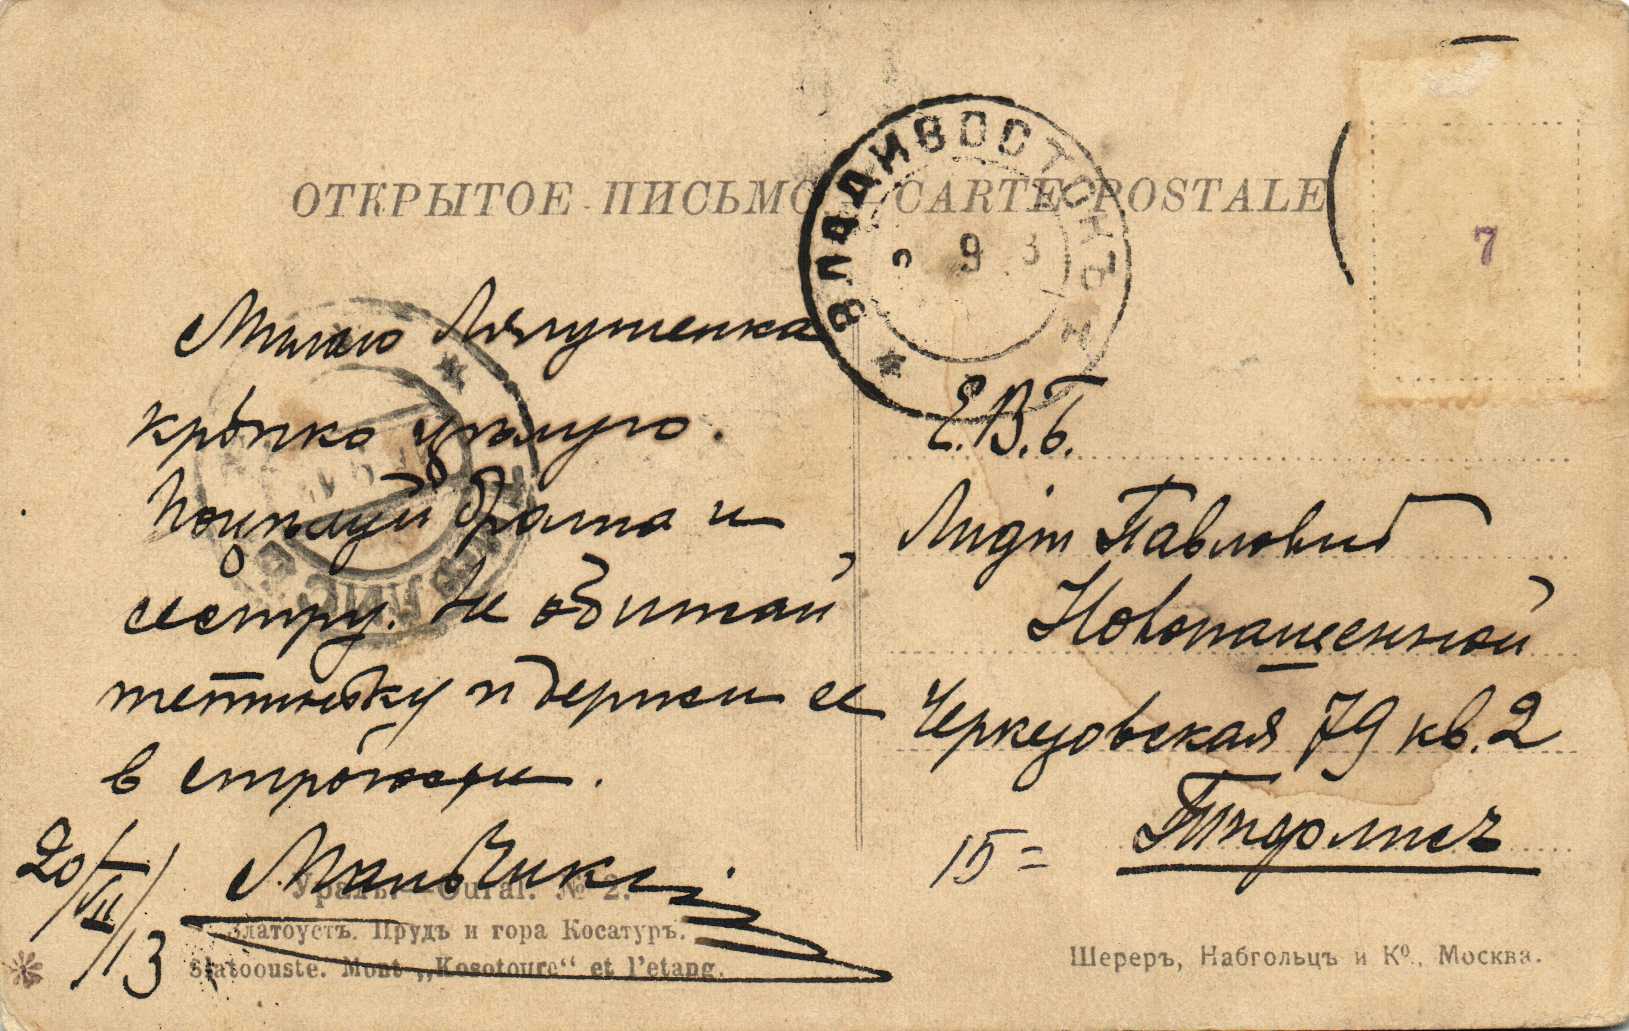 ОТКРЫТОЕ ПИСЬМО — CARTE POSTALE
ВЛАДИВОСТОКЪ
9
7
Милаю Лялушенка
крѣпко цѣлую.
Поцѣлуй брата и
сестру. Не обижай
тётинку и держи ее
в строгости.
20/VII/13
Е.В.Б.
Лидіи Павловнѣ
Новопашенной
Черкезовская 79 кв. 2
Тифлисъ
15 =
Уралъ. — Oural. № 2.
Златоустъ. Прудъ и гора Косатуръ.
Slatoouste. Mont „Kosotoure“ et l'etang.
Шереръ, Набгольцъ и Кº. Москва.